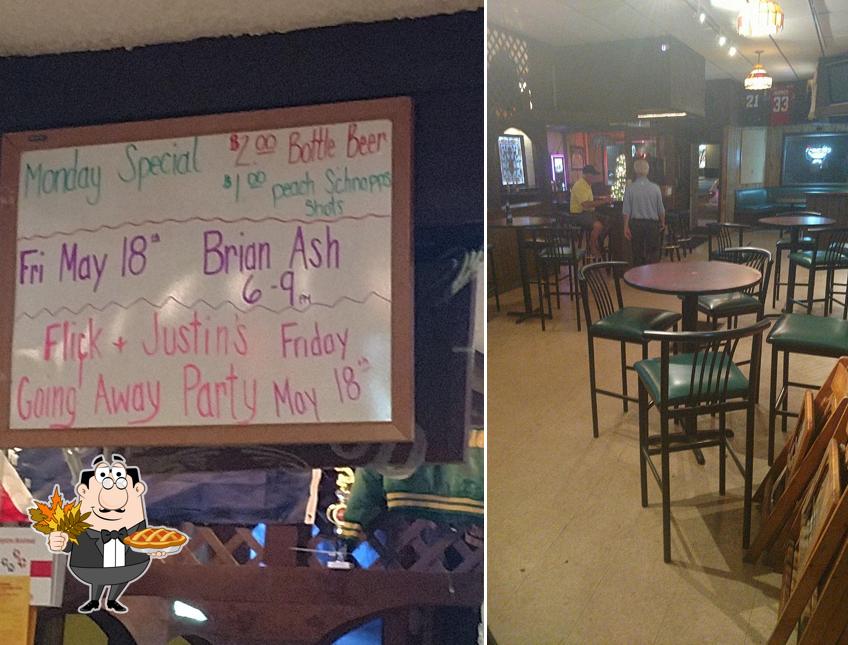 Monday Special $2.00 Bottle Beer
$1.00 peach Schnapps
shots
Fri May 18th Brian Ash
6-9PM
Flick + Justin's Friday
Going Away Party May 18th
21 33